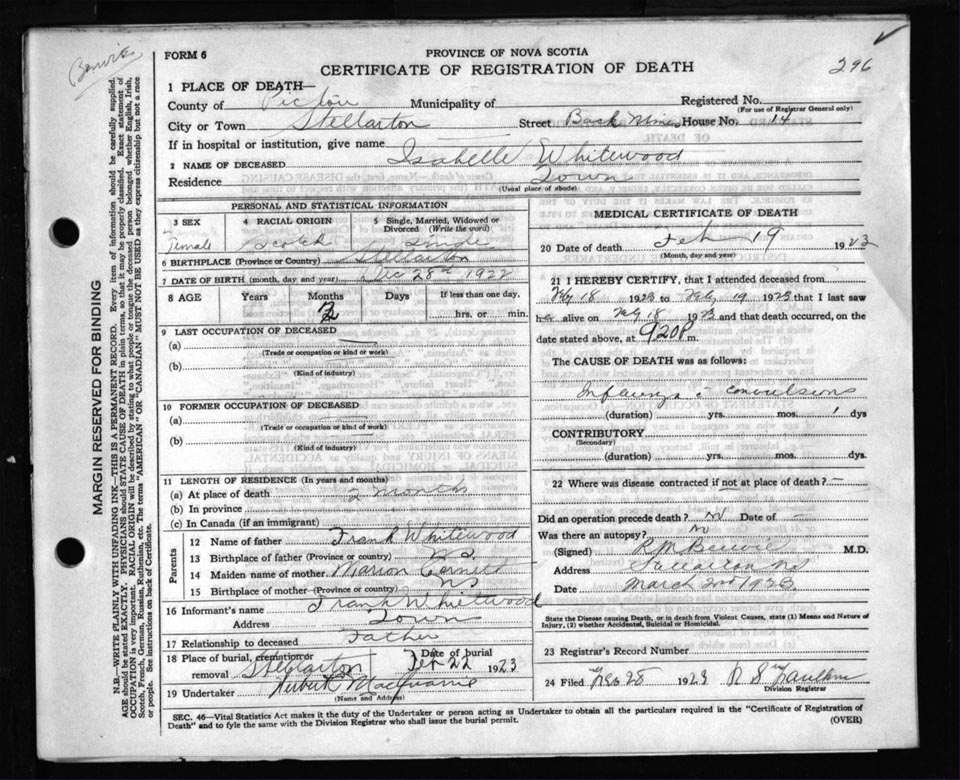 FORM 6
PROVINCE OF NOVA SCOTIA
CERTIFICATE OF REGISTRATION OF DEATH
296
1 PLACE OF DEATH—
County of Pictou Municipality of Registered No.
(For use of Registrar General only)
City or Town Stellarton Street Back Mines House No. 14
If in hospital or institution, give name
2 NAME OF DECEASED Isabelle Whitewood
Residence Town
(Usual place of abode)
PERSONAL AND STATISTICAL INFORMATION
3 SEX 4 RACIAL ORIGIN 5 Single, Married, Widowed or Divorced (Write the word)
Female Scotch Single
6 BIRTHPLACE (Province or Country) Stellarton
7 DATE OF BIRTH (month, day and year) Dec 28th 1922
8 AGE Years Months Days If less than one day,
2 hrs. or min.
9 LAST OCCUPATION OF DECEASED
(a)
(Trade or occupation or kind or work)
(b)
(Kind of industry)
10 FORMER OCCUPATION OF DECEASED
(a)
(Trade or occupation or kind or work)
(b)
(Kind of industry)
11 LENGTH OF RESIDENCE (In years and months)
(a) At place of death 2 months
(b) In province
(c) In Canada (if an immigrant)
Parents
12 Name of father Frank Whitewood
13 Birthplace of father (Province or country) N.S.
14 Maiden name of mother Marion
15 Birthplace of mother (Province or country) NS
16 Informant's name Frank Whitewood
Address Town
17 Relationship to deceased Father
18 Place of burial, cremation or removal Stellarton Date of burial Feb 22 1923
19 Undertaker
(Name and Address)
MEDICAL CERTIFICATE OF DEATH
20 Date of death Feb 19 1923
(Month, day and year)
21 I HEREBY CERTIFY, that I attended deceased from
Feby 18 1923 to Feby 19 1923 that I last saw
her alive on Feby 18 1923 and that death occurred, on
date stated above, at 920P m.
The CAUSE OF DEATH was as follows:
Influenza c convulsions
(duration) yrs. mos. 1 dys
CONTRIBUTORY
(Secondary)
(duration) yrs. mos. dys.
22 Where was disease contracted if not at place of death? —
Did an operation precede death? No Date of —
Was there an autopsy? No
(Signed) M.D.
Address Stellarton NS
Date March 2nd 1923
State the Disease causing Death, or in death from Violent Causes, state (1) Means and Nature of Injury, (2) whether Accidental, Suicidal or Homicidal.
23 Registrar's Record Number
24 Filed 28 1923
Division Registrar
SEC. 46—Vital Statistics Act makes it the duty of the Undertaker or person acting as Undertaker to obtain all the particulars required in the "Certificate of Registration of
Death" and to fyle the same with the Division Registrar who shall issue the burial permit.
(OVER)
MARGIN RESERVED FOR BINDING
N.B.—WRITE PLAINLY WITH UNFADING INK—THIS IS A PERMANENT RECORD. Every item of information should be carefully supplied.
AGE should be stated EXACTLY. PHYSICIANS should STATE CAUSE OF DEATH in plain terms, so that it may be properly classified. Exact statement of
OCCUPATION is very important. RACIAL ORIGIN will be described by stating to what people or tongue the deceased person belonged, whether English, Irish,
Scotch, French, German, Russian, Ruthenian, etc. The terms "AMERICAN" OR "CANADIAN" MUST NOT BE USED as they express citizenship but not a race
or people. See instructions on back of Certificate.